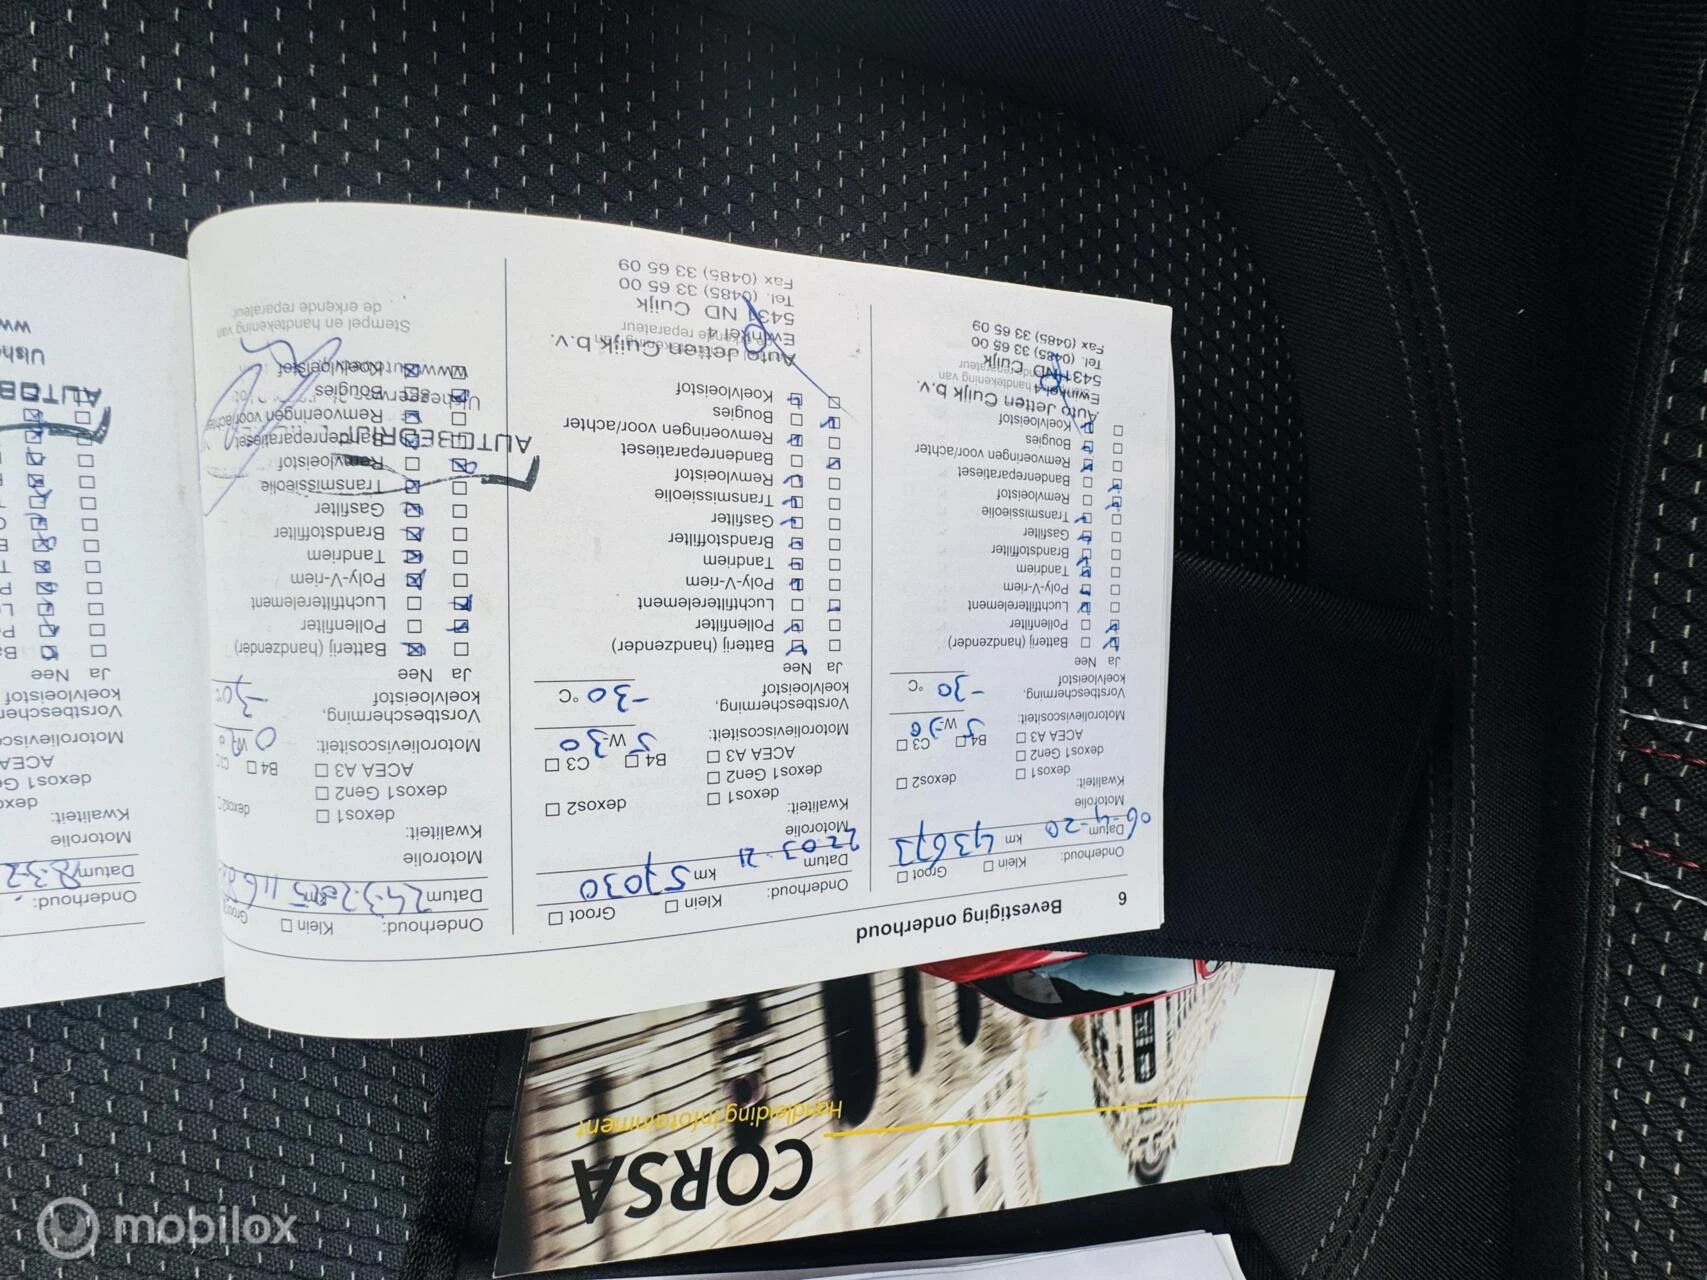 6
Bevestiging onderhoud
Onderhoud: Klein Groot
Datum 06-4-20 km 43673
Motorolie
Kwaliteit:
dexos1 dexos2
dexos1 Gen2
ACEA A3 B4 C3
Motorolieviscositeit: 5 W-30
Vorstbescherming,
koelvloeistof -30 °C
Ja Nee
Batterij (handzender)
Pollenfilter
Luchtfilterelement
Poly-V-riem
Tandriem
Brandstoffilter
Gasfilter
Transmissieolie
Remvloeistof
Bandenreparatieset
Remvoeringen voor/achter
Bougies
Koelvloeistof
Auto Jetten Cuijk b.v.
Ewinkel 4
5431 ND Cuijk
Tel. (0485) 33 65 00
Fax (0485) 33 65 09
Onderhoud: Klein Groot
Datum 22-03-21 km 57030
Motorolie
Kwaliteit:
dexos1 dexos2
dexos1 Gen2
ACEA A3 B4 C3
Motorolieviscositeit: 5 W-30
Vorstbescherming,
koelvloeistof -30 °C
Ja Nee
Batterij (handzender)
Pollenfilter
Luchtfilterelement
Poly-V-riem
Tandriem
Brandstoffilter
Gasfilter
Transmissieolie
Remvloeistof
Bandenreparatieset
Remvoeringen voor/achter
Bougies
Koelvloeistof
Auto Jetten Cuijk b.v.
Ewinkel 4
5431 ND Cuijk
Tel. (0485) 33 65 00
Fax (0485) 33 65 09
Onderhoud: Klein Groot
Datum 24-3-2025
Motorolie
Kwaliteit:
dexos1 dexos2
dexos1 Gen2
ACEA A3 B4
Motorolieviscositeit:
Vorstbescherming,
koelvloeistof -30°C
Ja Nee
Batterij (handzender)
Pollenfilter
Luchtfilterelement
Poly-V-riem
Tandriem
Brandstoffilter
Gasfilter
Transmissieolie
Remvloeistof
Bandenreparatieset
AUTOBEDRIJF
Remvoeringen voor/achter
Bougies
Koelvloeistof
Stempel en handtekening van
de erkende reparateur
Onderhoud:
Datum
Motorolie
Kwaliteit:
ACEA
Ja Nee
CORSA
Handleiding Infotainment
mobilox